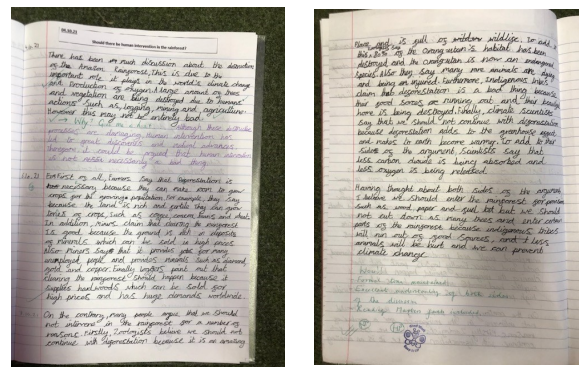 Should there be human intervention in the rainforest?
There has been much discussion about the destruction
of the Amazon rainforest, this is due to the
important role it plays in the world's climate change
and production of oxygen. Large amount on trees
and vegetation are being destroyed due to humans
actions such as, logging, mining and agriculture.
However this may not be entirely bad.
Although these
processes are damaging human intervention has
led to great discoveries and medical advances
therefore it could be argued that human
is not necessarily a bad thing.
First of all, farmers say that deforestation is
necessary because they can make room to grow
crops for the growing population for example, they say
because the land is hot and fertile they can grow
of crops, such as coffee, cocoa beans and
In addition, miners claim that clearing the rainforest
is good because the ground is rich in deposits
of minerals which can be sold for high prices
Also miners say that it provides jobs for many
unemployed people and provides minerals such as diamond,
gold and copper. Finally loggers point out that
clearing the rainforest should happen because it
supplies hardwoods which can be sold for
high prices and has huge demands worldwide
On the contrary, many people argue that we should
not intervene in the rainforest for a number of
reasons. Firstly, zoologists believe we should not
continue with deforestation because it is an amazing
place and is full of wildlife. To add to
this, 80% of the orangutan's habitat has been
destroyed and the orangutan is now an endangered
species. Also they say many more animals are dying
and being injured. Furthermore, Indigenous tribes
claim that deforestation is a bad thing because
their food sources are running out and their beautiful
home is being destroyed. Finally, climate scientists
say that we should not continue with deforestation
because deforestation adds to the greenhouse effect
and makes the earth become warmer. To add to their
sides of the argument, scientists say that
less carbon dioxide is being absorbed and
less oxygen is being released.
Having thought about both sides of the argument
I believe we should enter the rainforest for provisions
such as wood, paper and but we should
not cut down as many trees and enter certain
parts of the rainforest because indigenous tribes
will run out of food sources, and less
animals will be hurt and we can prevent
climate change.